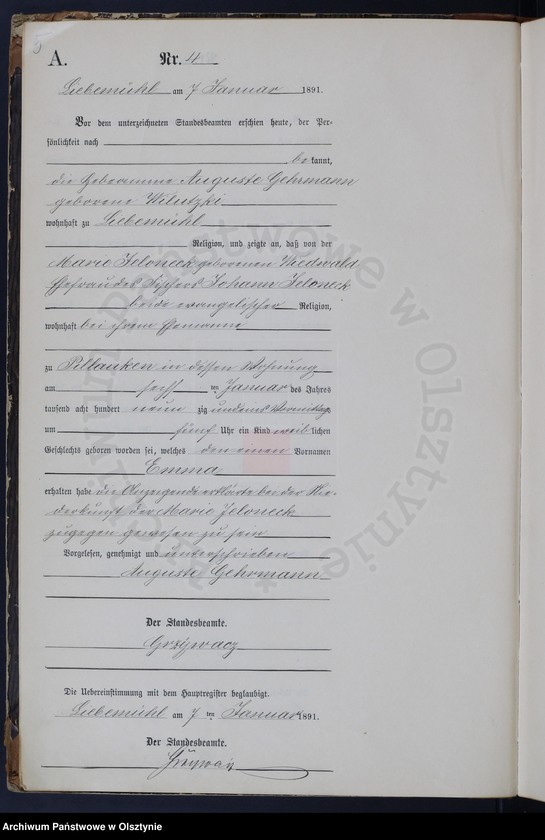 A.
Nr. 4
Liebemühl am 7 Januar 1891.
Vor dem unterzeichneten Standesbeamten erschien heute, der Per-
sönlichkeit nach
be kannt,
die Hebeamme Auguste Gehrmann
geborene Wilutzki
wohnhaft zu Liebemühl
Religion, und zeigte an, daß von der
Marie Jeloneck geborenen Kiedwald
Ehefrau des Fischers Johann Jeloneck
beide evangelischer Religion,
wohnhaft bei ihrem Ehemanne
zu Pillauken in dessen Wohnung
am sechs ten Januar des Jahres
tausend acht hundert neun zig und eins Vormittags
um fünf Uhr ein Kind weib lichen
Geschlechts geboren worden sei, welches den einen Vornamen
Emma
erhalten habe die Anzeigende erklärte bei der Nie-
derkunft der Marie Jeloneck
zugegen gewesen zu sein
Vorgelesen, genehmigt und unterschrieben
Auguste Gehrmann
Der Standesbeamte.
Grzywacz
Die Uebereinstimmung mit dem Hauptregister beglaubigt.
Liebemühl am 7 ten Januar 1891.
Der Standesbeamte.
Grzywacz
Archiwum Państwowe w Olsztynie
Archiwum Państwowe w Olsztynie